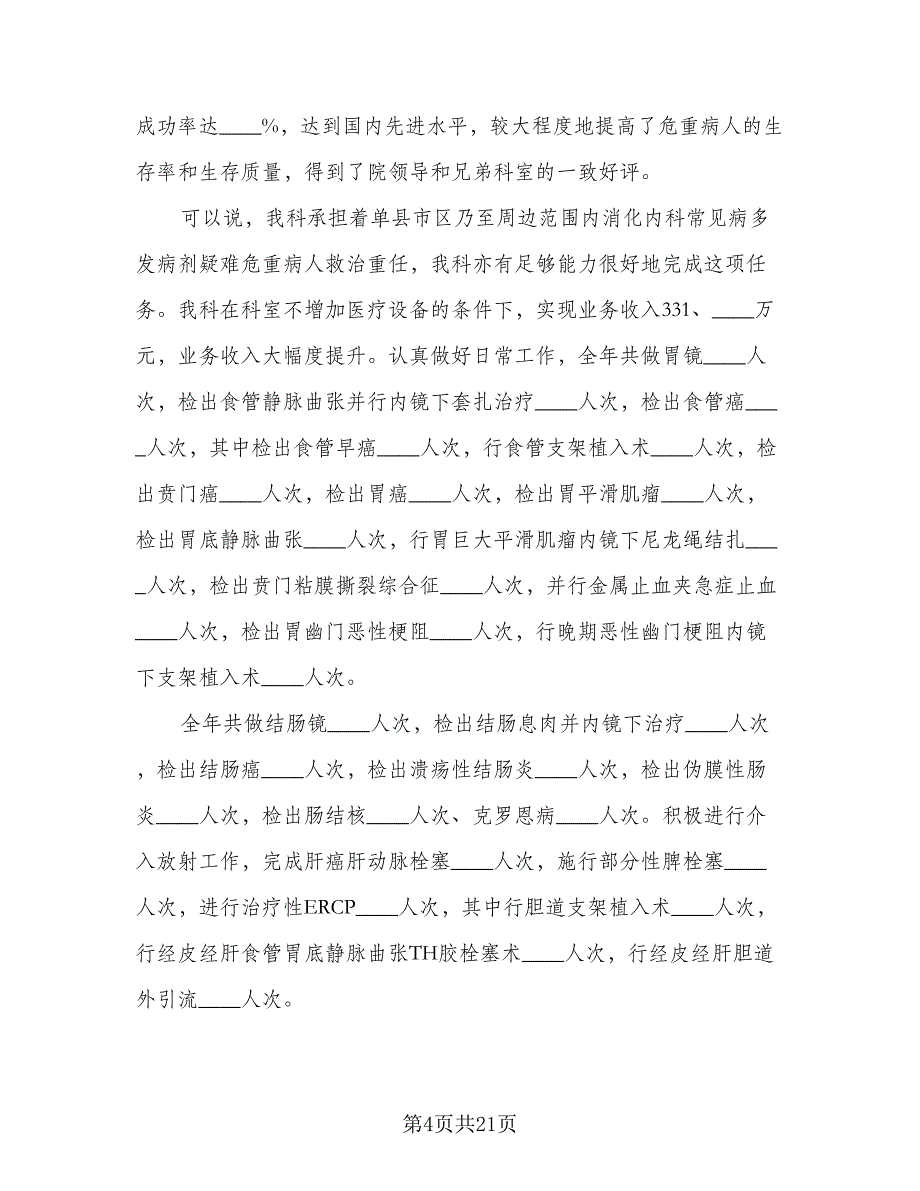 成功率达____%，达到国内先进水平，较大程度地提高了危重病人的生
存率和生存质量，得到了院领导和兄弟科室的一致好评。
可以说，我科承担着单县市区乃至周边范围内消化内科常见病多
发病剂疑难危重病人救治重任，我科亦有足够能力很好地完成这项任
务。我科在科室不增加医疗设备的条件下，实现业务收入331、____万
元，业务收入大幅度提升。认真做好日常工作，全年共做胃镜____人
次，检出食管静脉曲张并行内镜下套扎治疗____人次，检出食管癌___
_人次，其中检出食管早癌____人次，行食管支架植入术____人次，检
出贲门癌____人次，检出胃癌____人次，检出胃平滑肌瘤____人次，
检出胃底静脉曲张____人次，行胃巨大平滑肌瘤内镜下尼龙绳结扎___
_人次，检出贲门粘膜撕裂综合征____人次，并行金属止血夹急症止血
____人次，检出胃幽门恶性梗阻____人次，行晚期恶性幽门梗阻内镜
下支架植入术____人次。
全年共做结肠镜____人次，检出结肠息肉并内镜下治疗____人次
，检出结肠癌____人次，检出溃疡性结肠炎____人次，检出伪膜性肠
炎____人次，检出肠结核____人次、克罗恩病____人次。积极进行介
入放射工作，完成肝癌肝动脉栓塞____人次，施行部分性脾栓塞____
人次，进行治疗性ERCP____人次，其中行胆道支架植入术____人次，
行经皮经肝食管胃底静脉曲张TH胶栓塞术____人次，行经皮经肝胆道
外引流____人次。
第4页共21页